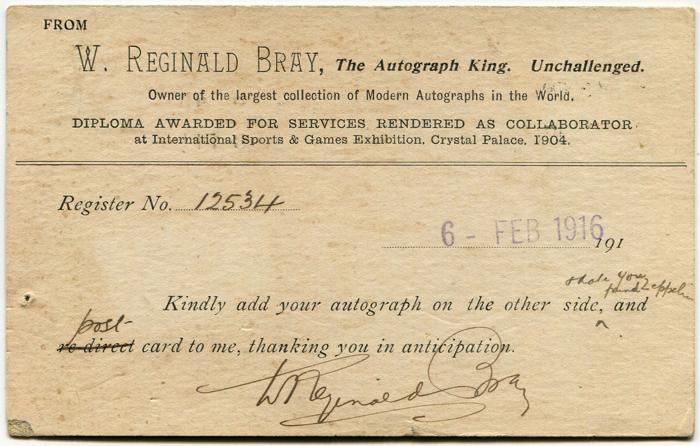 FROM
W. REGINALD BRAY, The Autograph King. Unchallenged.
Owner of the largest collection of Modern Autographs in the World.
DIPLOMA AWARDED FOR SERVICES RENDERED AS COLLABORATOR
at International Sports & Games Exhibition, Crystal Palace, 1904.
Register No. 12534
6 - FEB 1916
191
state you
found Zeppelin
Kindly add your autograph on the other side, ^ and
post-
re-direct card to me, thanking you in anticipation.
W Reginald Bray